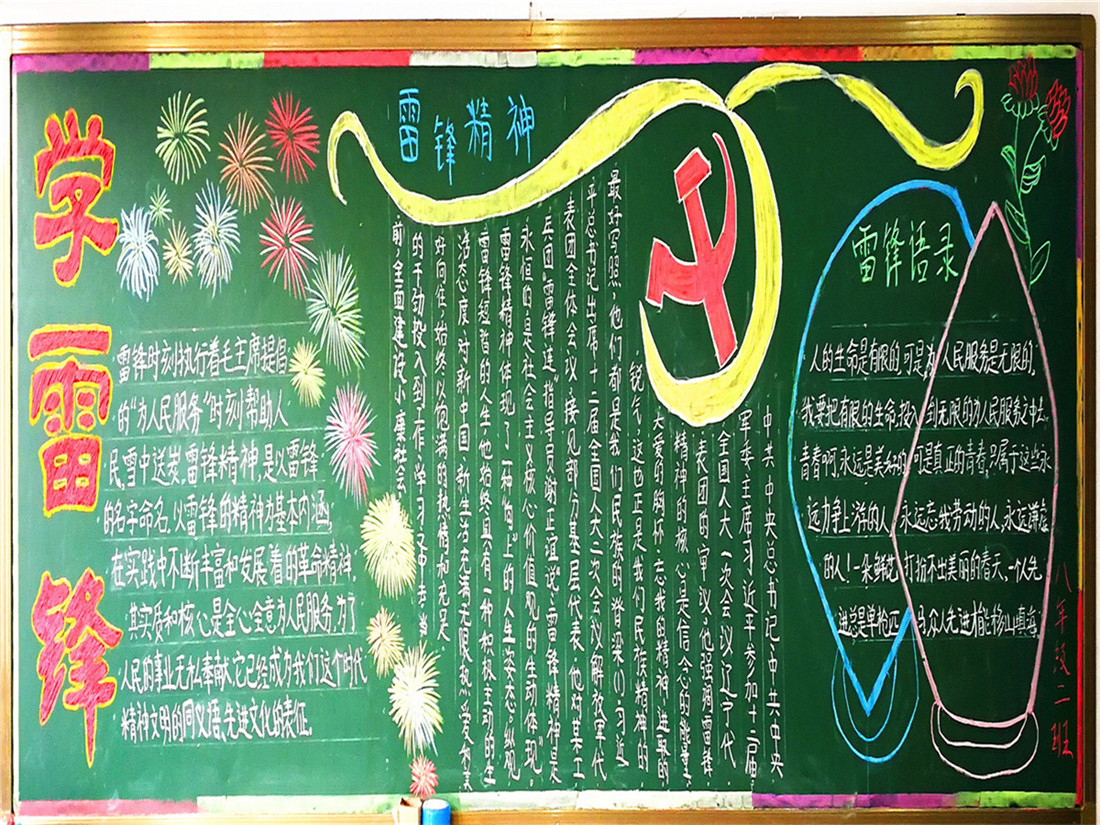 学雷锋
雷锋时刻执行着毛主席提倡
的"为人民服务"时刻帮助人
民,雪中送炭,雷锋精神,是以雷锋
的名字命名,以雷锋的精神为基本内涵,
在实践中不断丰富和发展着的革命精神,
其实质和核心是全心全意为人民服务,为了
人民的事业无私奉献,它已经成为我们这个时代
精神文明的同义语,先进文化的表征。
雷锋精神
中共中央总书记、中共中央
军委主席习近平参加十二届
全国人大一次会议辽宁代
表团的审议,他强调雷锋
精神的核心是信念的能量
大爱的胸怀、忘我的精神进取的
锐气,这也正是我们民族精神的
最好写照,他们都是我们民族的脊梁(1)习近
平总书记出席十二届全国人大二次会议解放军代
表团全体会议,接见部分基层代表,他对某工
兵团"雷锋连"指导员谢正谊说:雷锋精神是
永恒的,是社会主义核心价值观的生动体现。"
雷锋精神体现了一种"向上"的人生姿态。纵观
雷锋短暂的人生他始终具有一种积极主动的生
活态度,对新中国、新生活充满无限热爱和美
好向往,始终以饱满的热情和充足
的干劲投入到工作、学习之中去,当
前,全面建设小康社会
雷锋语录
人的生命是有限的,可是,为人民服务是无限的,
我要把有限的生命,投入到无限的为人民服务之中去。
青春啊,永远是美好的,可是真正的青春,只属于这些永
远力争上游的人,永远忘我劳动的人,永远谦虚
的人!一朵鲜花打扮不出美丽的春天,一个人先
进总是单枪匹马,众人先进才能移山填海
八年级二班